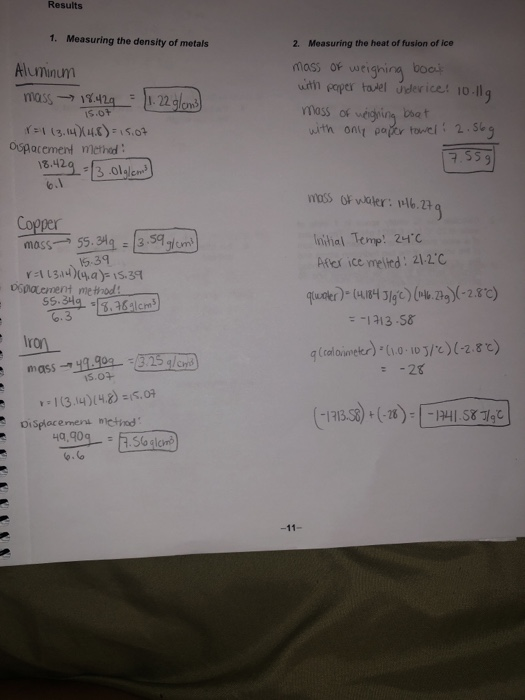 Results
1. Measuring the density of metals
Aluminum
mass → 18.42g = 1.22 g/cm³
15.07
r=1 (3.14)(4.8) = 15.07
Displacement method:
18.42g = 3.01g/cm³
6.1
Copper
mass → 55.34g = 3.59 g/cm³
15.39
r=1 (3.14)(4.9) = 15.39
Displacement method:
55.34g = 8.78g/cm³
6.3
Iron
mass → 49.90g = 3.25 g/cm³
15.07
r=1(3.14)(4.8) = 15.07
Displacement method:
49.90g = 7.56g/cm³
6.6
2. Measuring the heat of fusion of ice
mass of weighing boat
with paper towel ice: 10.11g
mass of weighing boat
with only paper towel: 2.56g
7.55g
mass of water: 146.27g
Initial Temp: 24°C
After ice melted: 21.2°C
q(water) = (4.184 J/g°C)(146.27g)(-2.8°C)
= -1713.58
q(calorimeter) = (1.0·10 J/°C)(-2.8°C)
= -28
(-1713.58) + (-28) = -1741.58 J/g°C
-11-